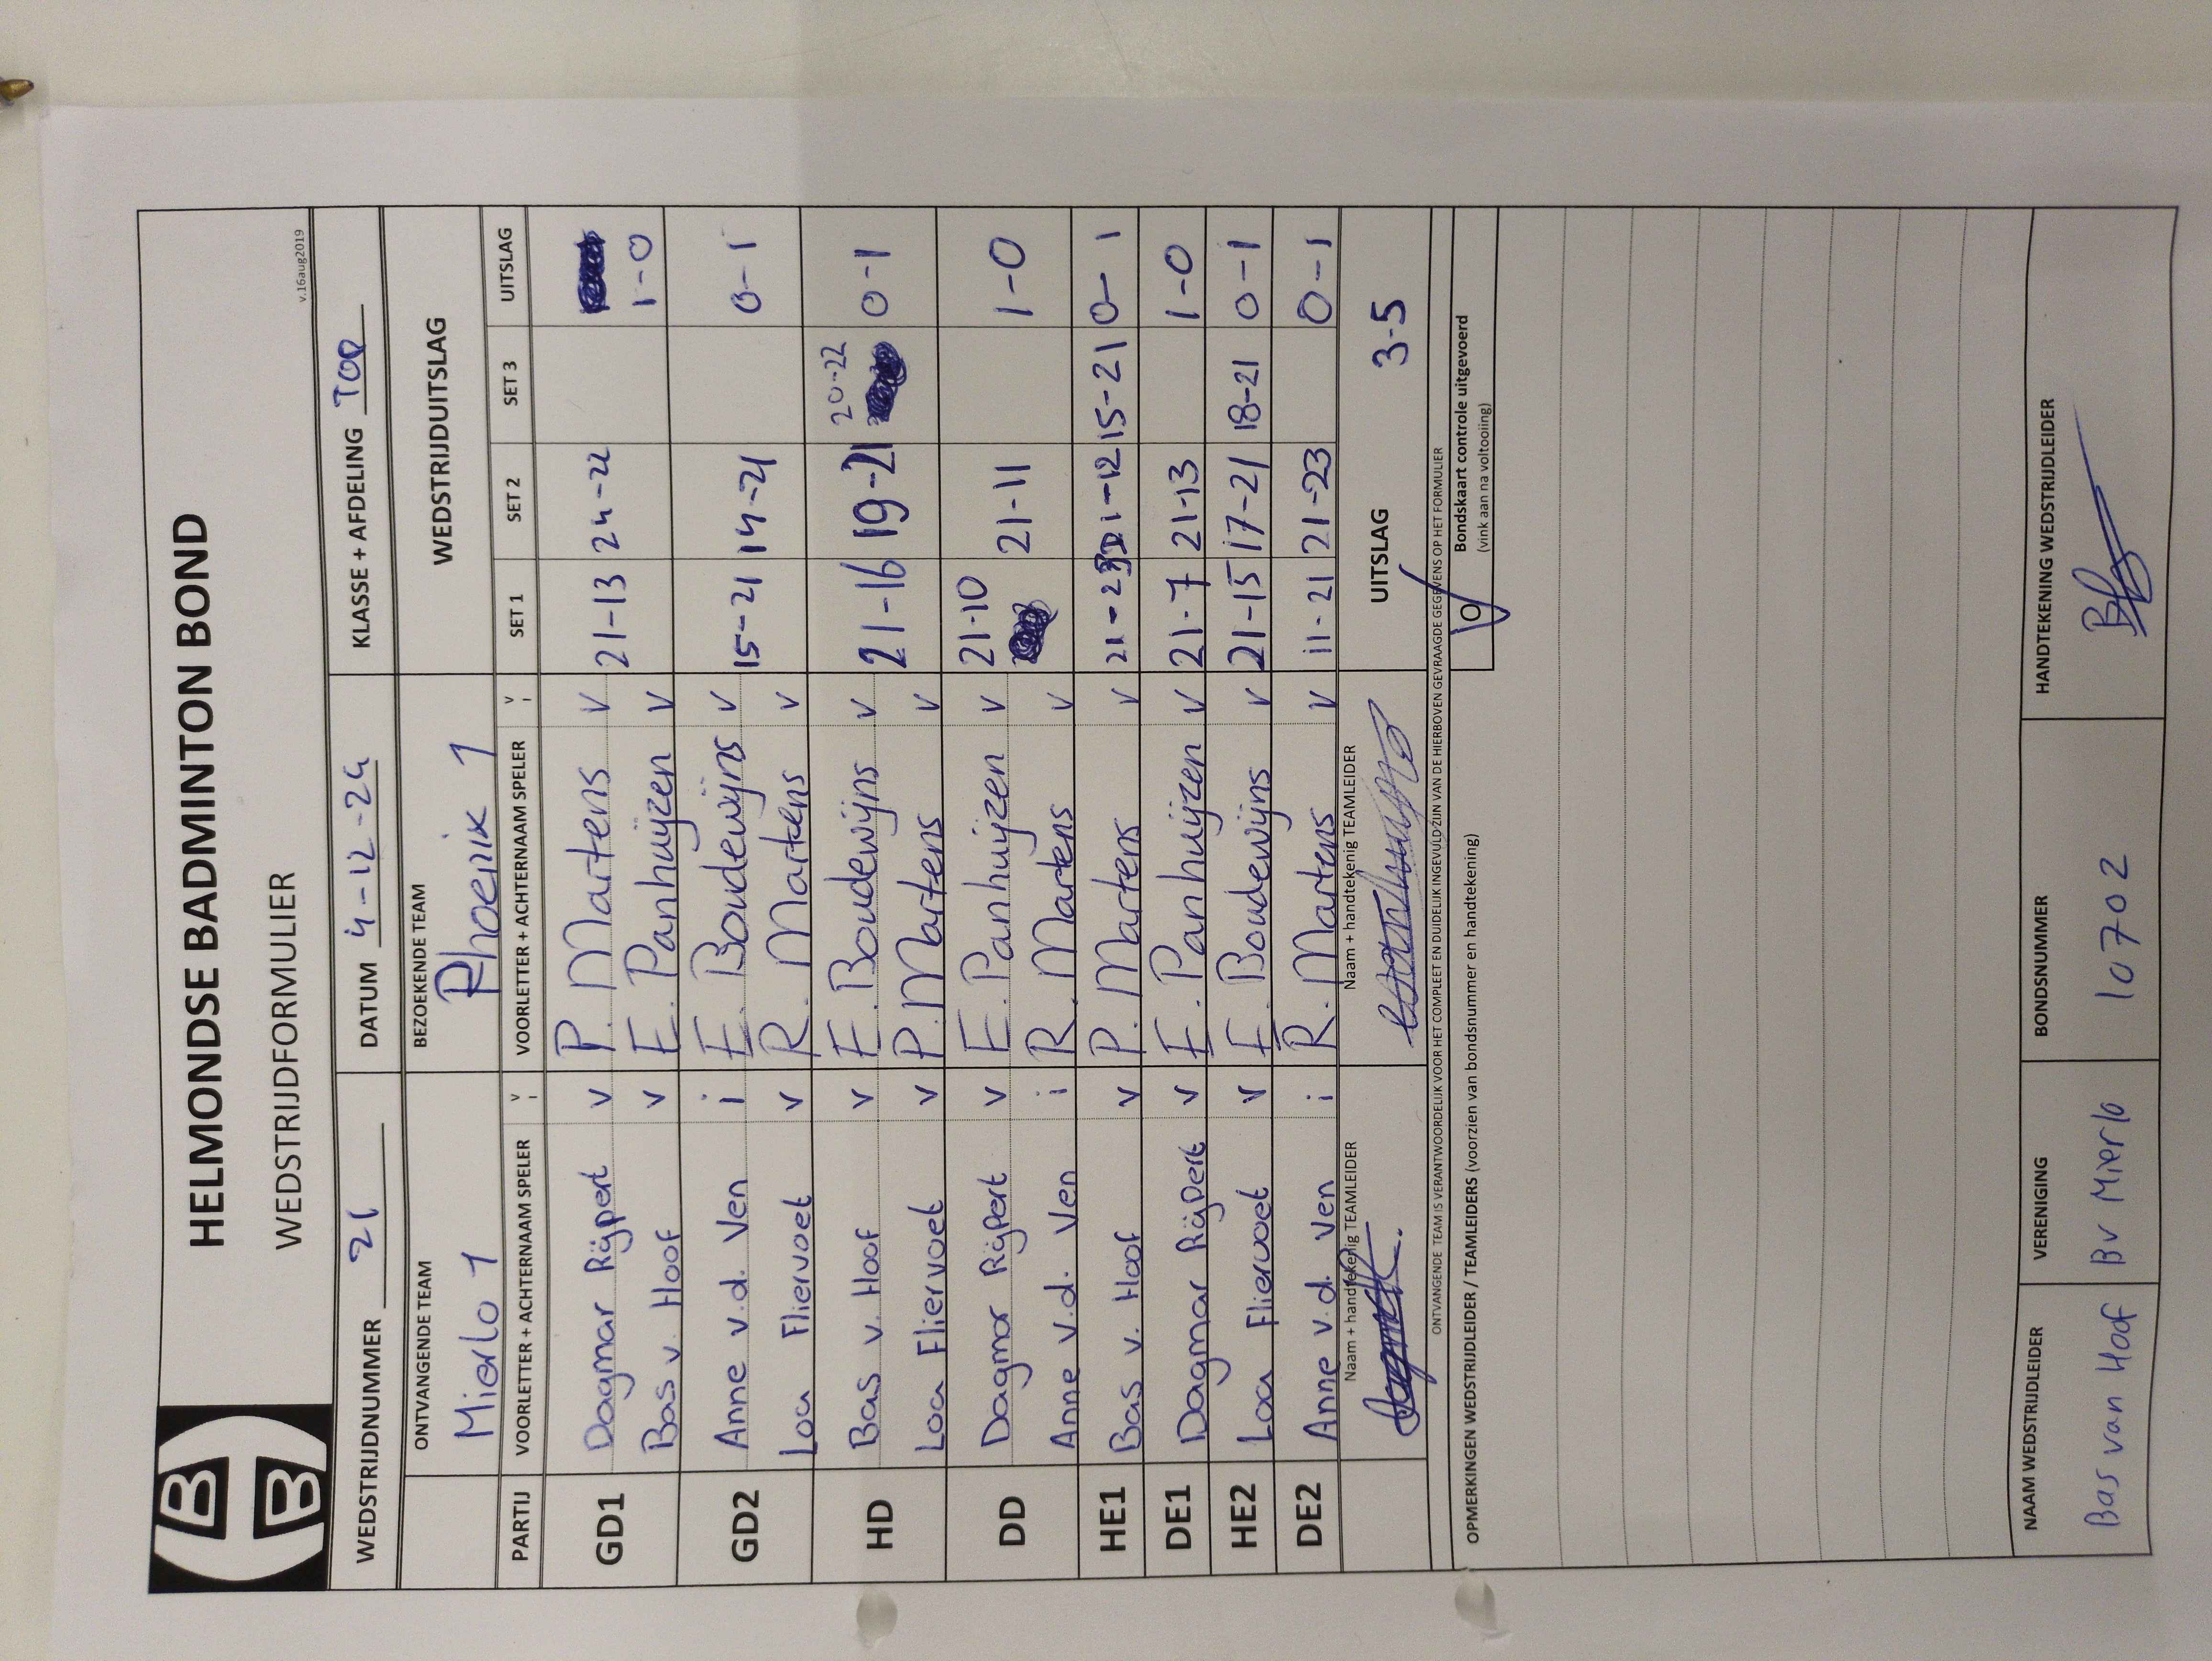 HELMONDSE BADMINTON BOND
WEDSTRIJDFORMULIER
v.16aug2019
B
B
WEDSTRIJDNUMMER 21 DATUM 4-12-24 KLASSE + AFDELING TOP
ONTVANGENDE TEAM BEZOEKENDE TEAM WEDSTRIJDUITSLAG
Mierlo 1 Phoenix 1
PARTIJ VOORLETTER + ACHTERNAAM SPELER v i VOORLETTER + ACHTERNAAM SPELER v i SET 1 SET 2 SET 3 UITSLAG
GD1 Dagmar Rijpert v P. Martens v 21-13 24-22 1-0
Bas v. Hoof v E. Panhuijzen v
GD2 Anne v.d. Ven i E. Boudewijns v 15-21 14-21 0-1
Loa Fliervoet v R. Martens v
HD Bas v. Hoof v E. Boudewijns v 21-16 19-21 20-22 0-1
Loa Fliervoet v P. Martens v
DD Dagmar Rijpert v E. Panhuijzen v 21-10 21-11 1-0
Anne v.d. Ven i R. Martens v
HE1 Bas v. Hoof v P. Martens v 21-23 21-12 15-21 0-1
DE1 Dagmar Rijpert v E. Panhuijzen v 21-7 21-13 1-0
HE2 Loa Fliervoet v E. Boudewijns v 21-15 17-21 18-21 0-1
DE2 Anne v.d. Ven i R. Martens v 11-21 21-23 0-1
Naam + handtekenig TEAMLEIDER Naam + handtekenig TEAMLEIDER UITSLAG 3-5
ONTVANGENDE TEAM IS VERANTWOORDELIJK VOOR HET COMPLEET EN DUIDELIJK INGEVULD ZIJN VAN DE HIERBOVEN GEVRAAGDE GEGEVENS OP HET FORMULIER
OPMERKINGEN WEDSTRIJDLEIDER / TEAMLEIDERS (voorzien van bondsnummer en handtekening) O Bondskaart controle uitgevoerd
(vink aan na voltooiing)
NAAM WEDSTRIJDLEIDER VERENIGING BONDSNUMMER HANDTEKENING WEDSTRIJDLEIDER
Bas van Hoof BV Mierlo 10702